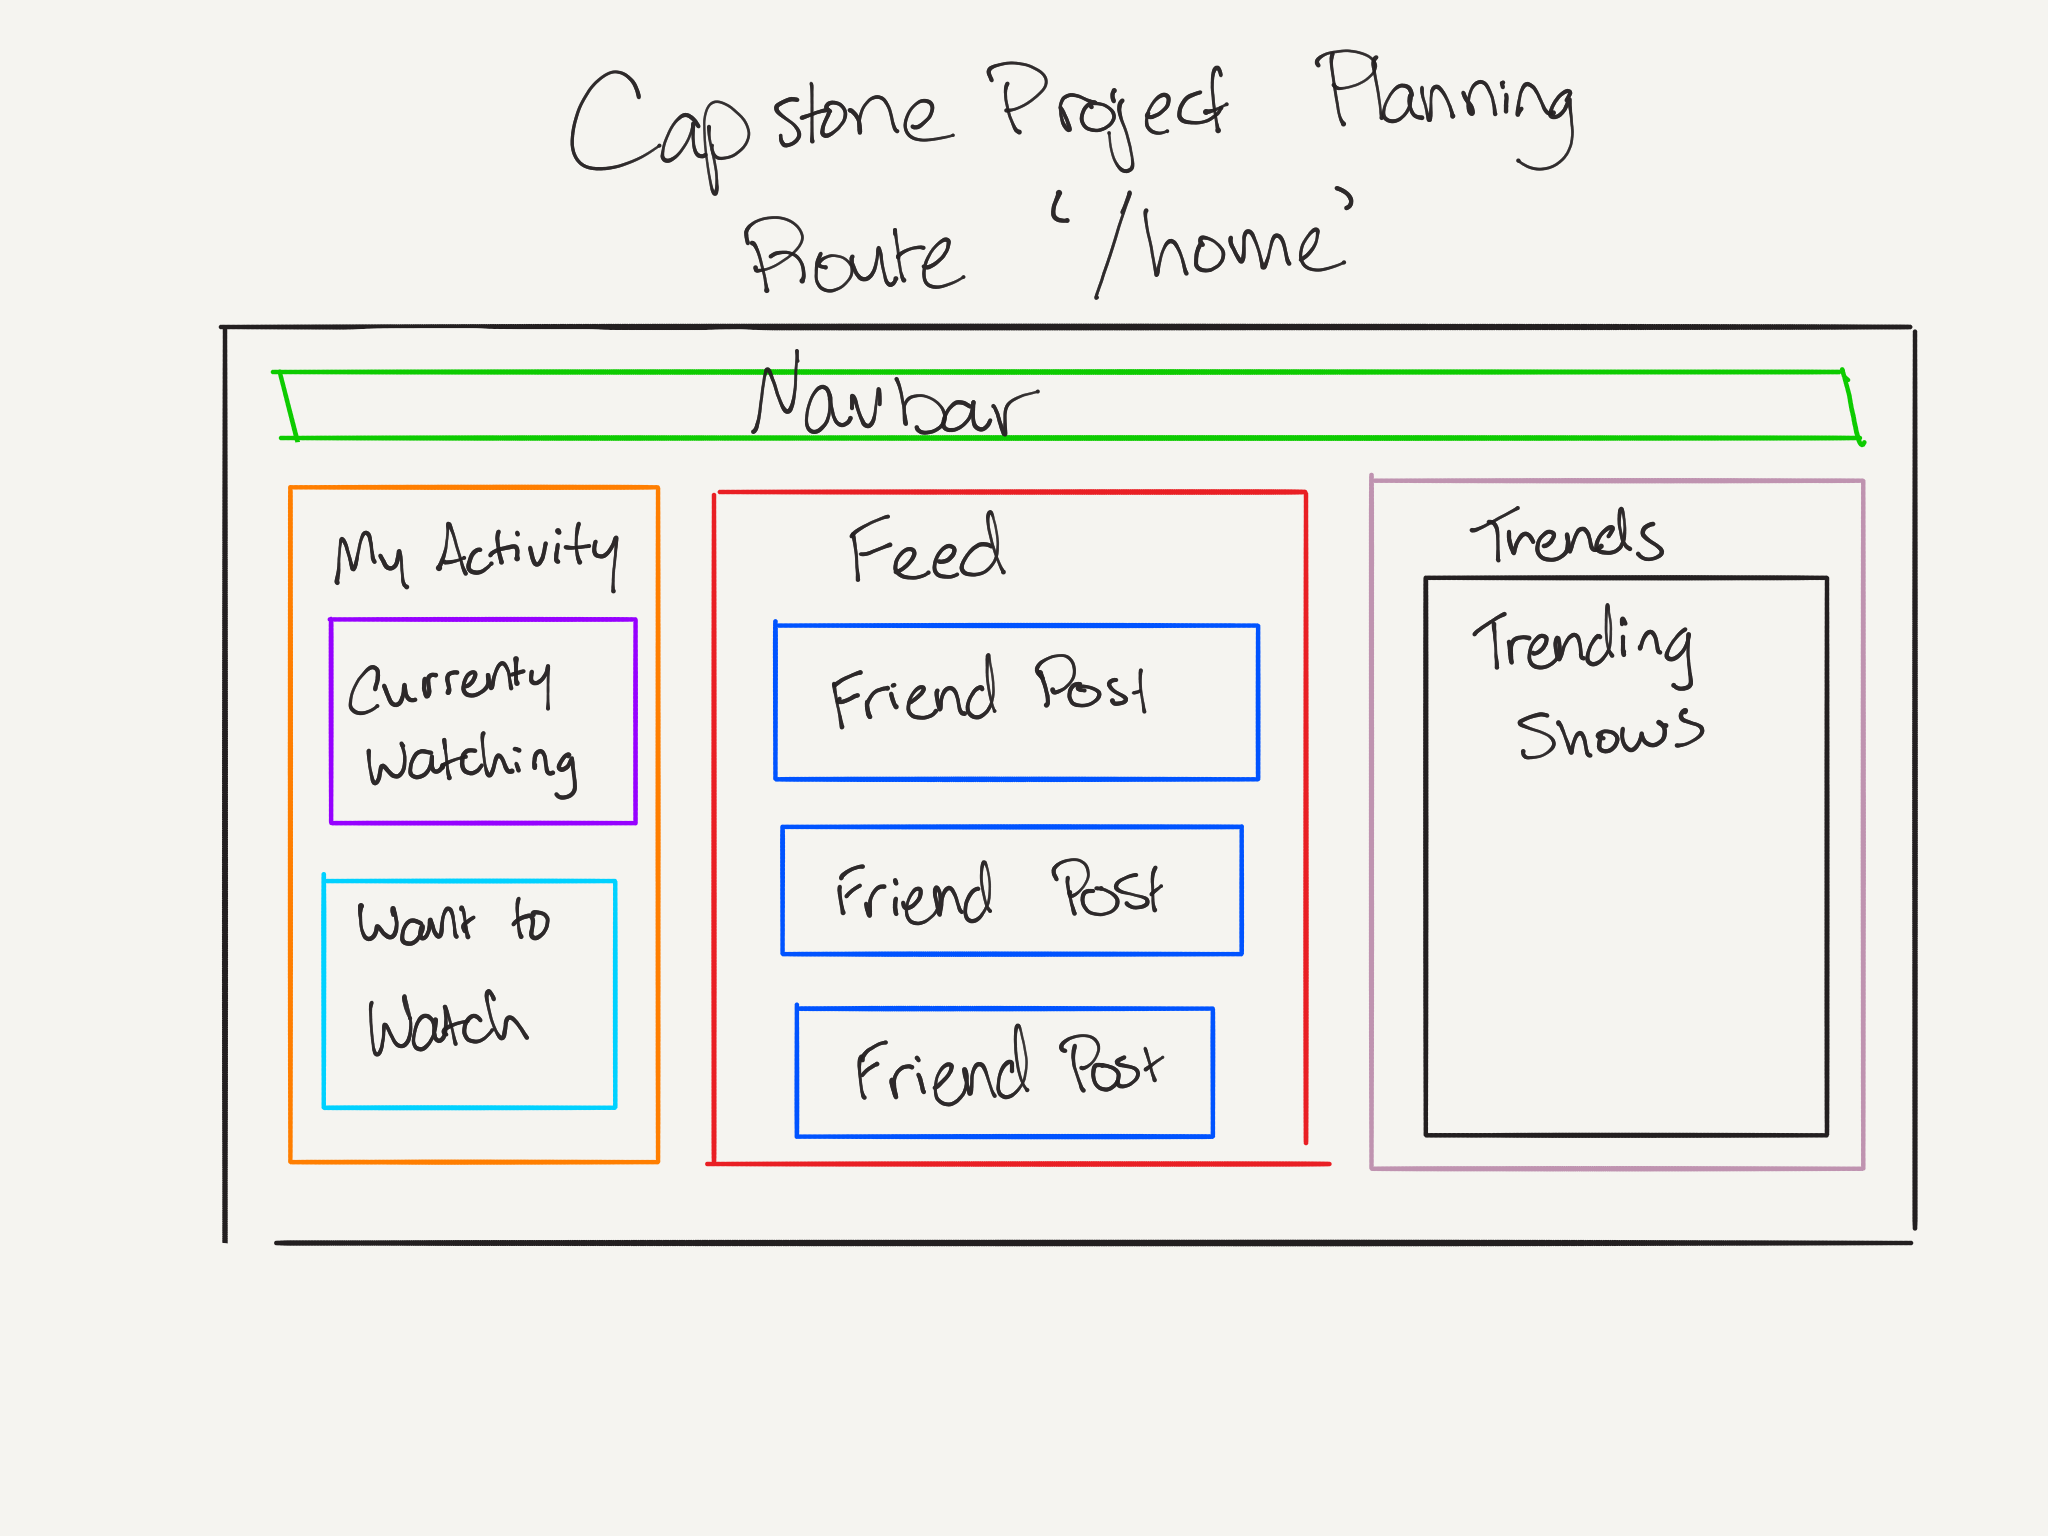 Capstone Project Planning
Route '/home'
Navbar
My Activity
Currenty
Watching
Want to
Watch
Feed
Friend Post
Friend Post
Friend Post
Trends
Trending
Shows